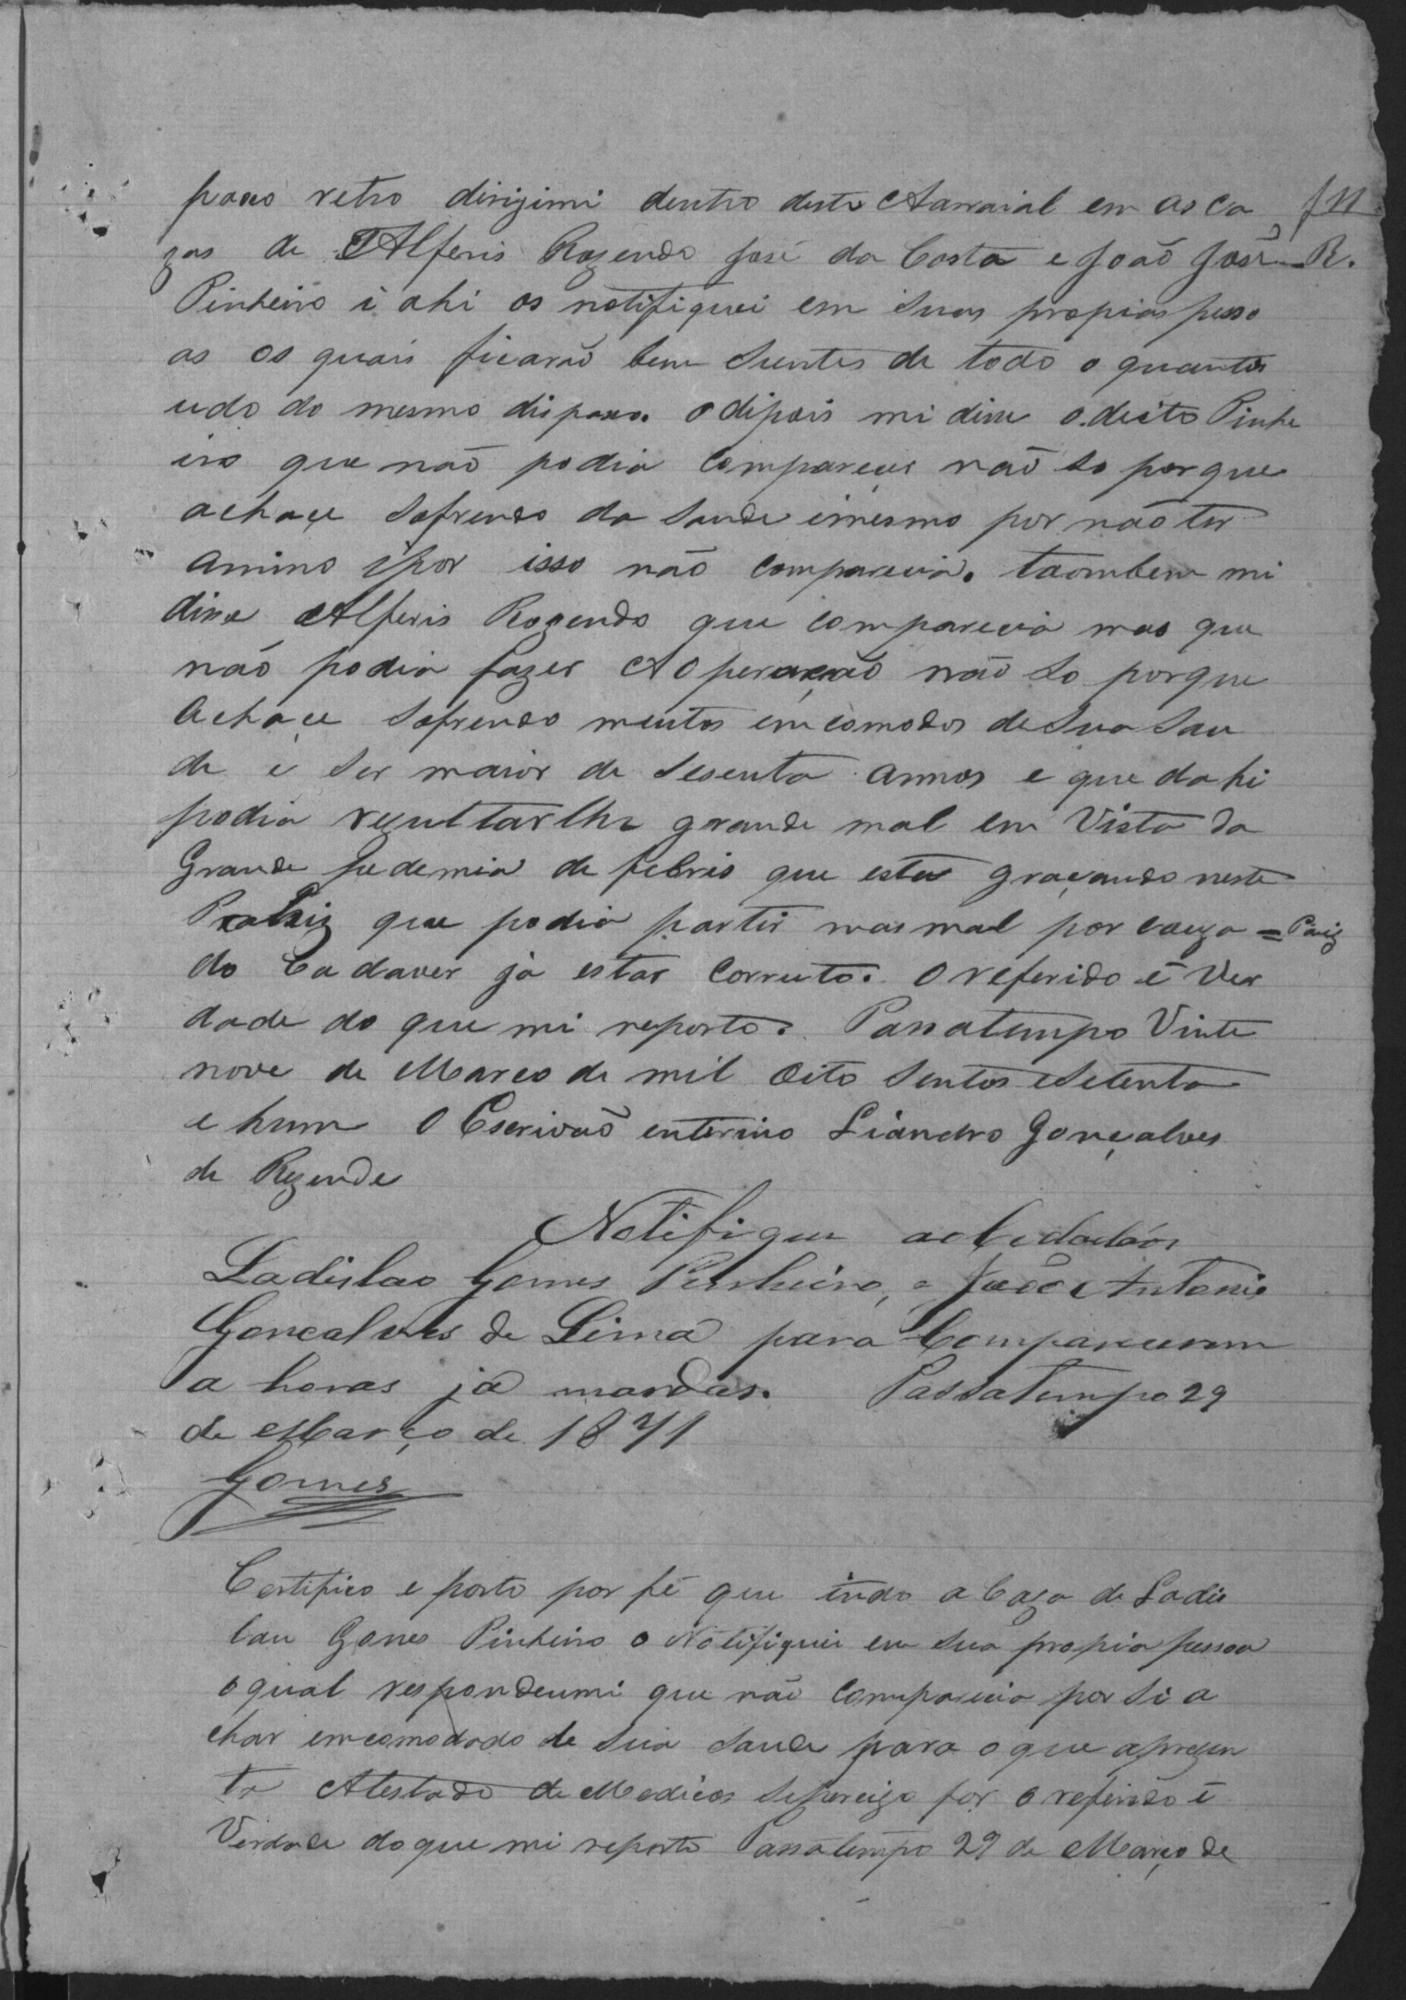 paxo retro dirigimi dentro deste Aarraial em as ca
zas de Alferis Rozendo José da Costa e João José R.
Pinheiro i ahi os notifiquei em suas propias pesso
as os quais ficarão bem sientes de todo o quanto
udo do mesmo dispaxo. o dipois mi dise o deito Pinhe
iro que não podia Compareçer não so porque
achaçe sofrendo da saude imesmo por não ter
animo ipor isso não compareçia. taombem mi
dise Alferis Rozendo que comparecia mas que
não podia fazer A operação não so porque
Achaçe sofrendo muitos emcomodos de sua sau
de e ser maior de sesenta annos e que dahi
podia rezultarlhe grande mal em Vista da
Grande pedemia de febris que esta graçando neste
Paiz que podia partir mas mal por cauza = Paiz
do Cadaver ja estar Corruto. O referido é Ver
dade do que mi reporto. Passatempo Vinte
nove de Marco de mil Oito sentos e Setenta
e hum O Escrivaõ enterino Liandro Gonçalves
de Rezende
Notifique ao Cidadãos
Ladislao Gomes Pinheiro, e João Antonio
Goncalves de Lima para Comparecerem
a horas já marcdas. Passatempo 29
de Março de 1871
Gomes
Certifico e porto por fé que indo a Caza de Ladis
lau Gomes Pinheiro o Notifiquei em sua propia pessoa
o qual respondeumi que não comparecia por si a
char emcomodado de sua saude para o que aprezen
ta Atestado de Medicos se for o referido é
Verdade do que mi reporto Passatempo 29 de Março de